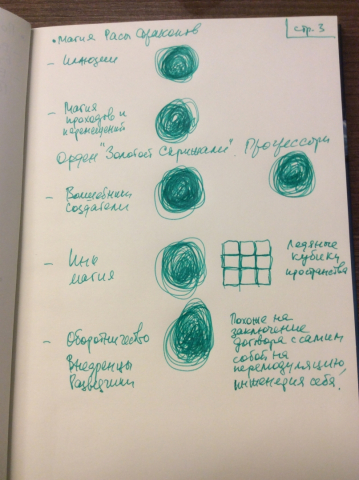 стр. 3
• Магия Расы Драконов
- Иллюзии
- Магия
проходов и
перемещений
Орден "Золотой Скрижали". Процессоры
- Волшебники
создатели
- Инь
магия
Ледяные
кубики
пространства
- Оборотничество
Внедренцы
Разведчики
Похоже на
заключение
договора с самим
собой на
перемодуляцию
инженерия себя!